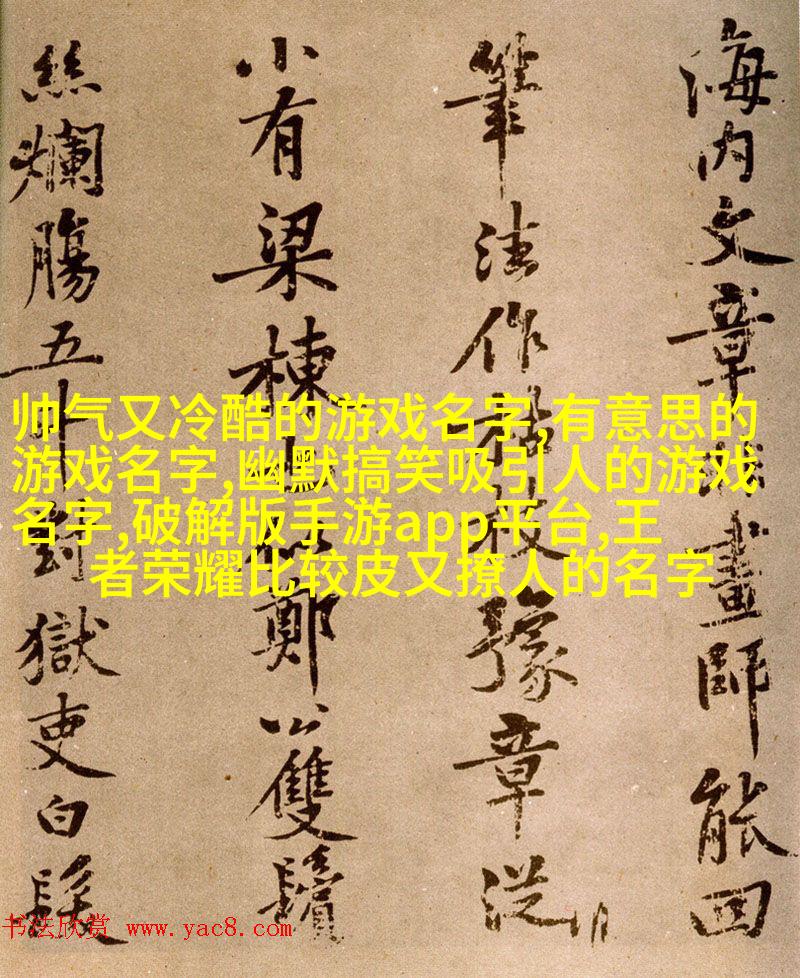 海内文章非畫師能回
筆法作枯枝豫章從
小有梁棟也似鄭公雙鬢
絲爛腸五斗對獄吏白髮
帅气又冷酷的游戏名字,有意思的
游戏名字,幽默搞笑吸引人的游戏
名字,破解版手游app平台,王
者荣耀比较皮又撩人的名字
书法欣赏 www.yac8.com